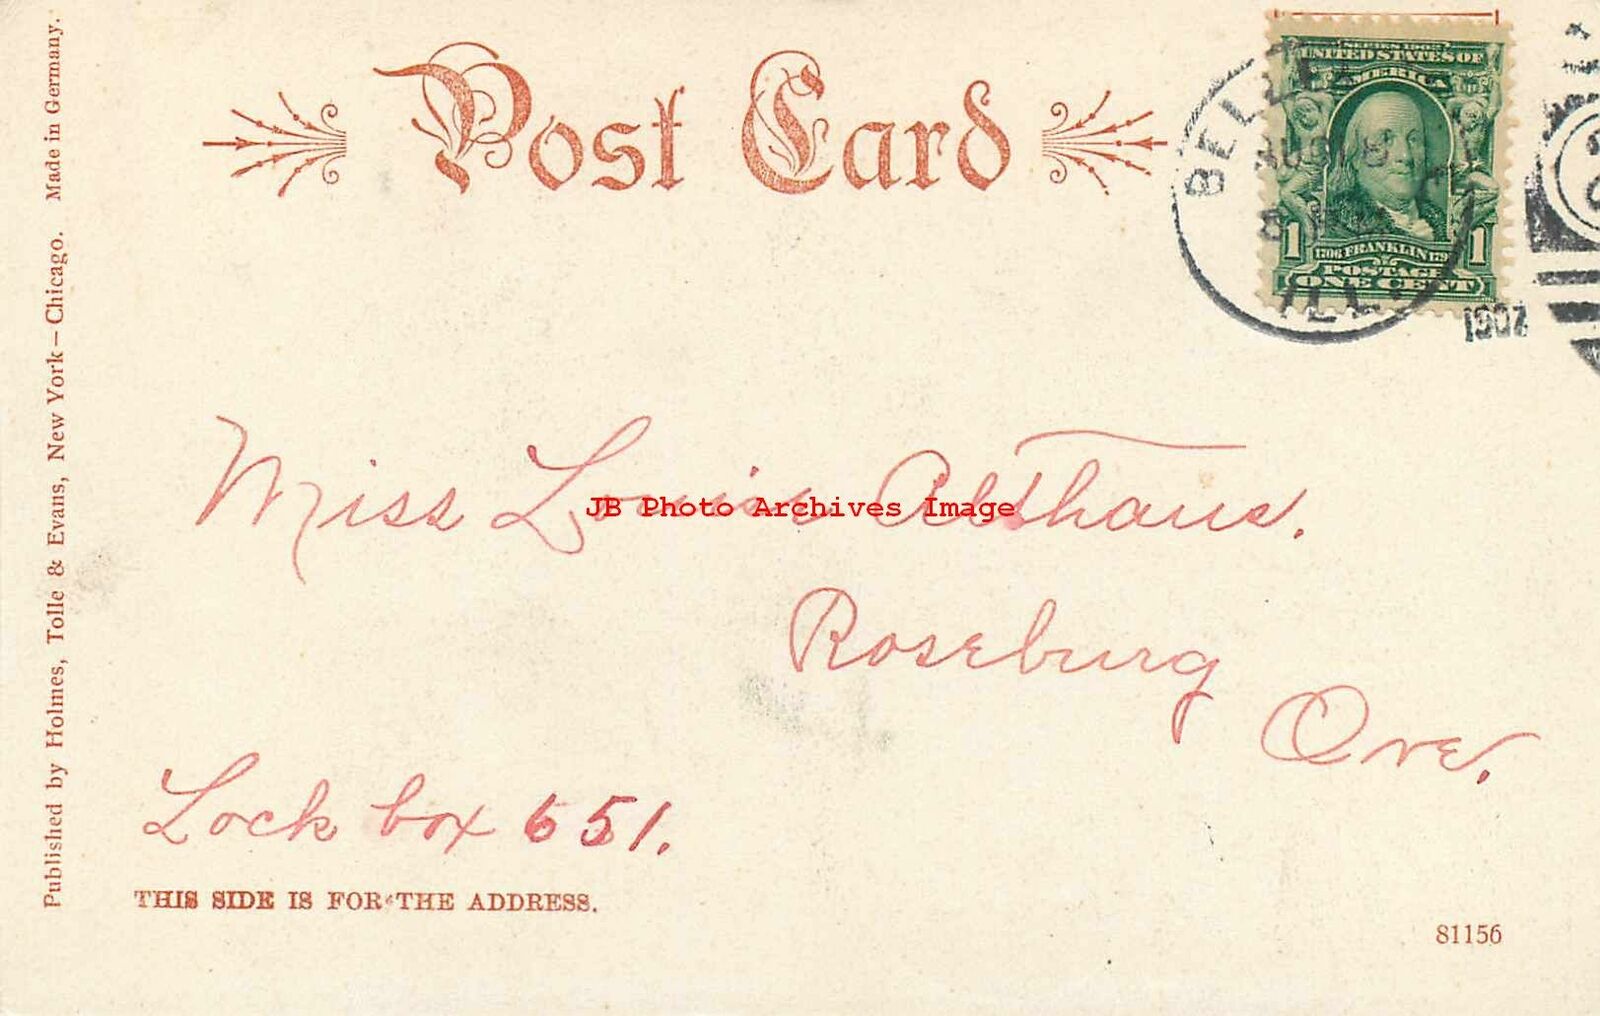 Post Card
SERIES 1902
UNITED STATES OF
AMERICA
1 1706 FRANKLIN 1790 1
POSTAGE
ONE CENT
ILL.
Miss Louise Althaus.
JB Photo Archives Image
Roseburg
Ore.
Lock box 651.
THIS SIDE IS FOR THE ADDRESS.
81156
Published by Holmes, Tolle & Evans, New York—Chicago. Made in Germany.